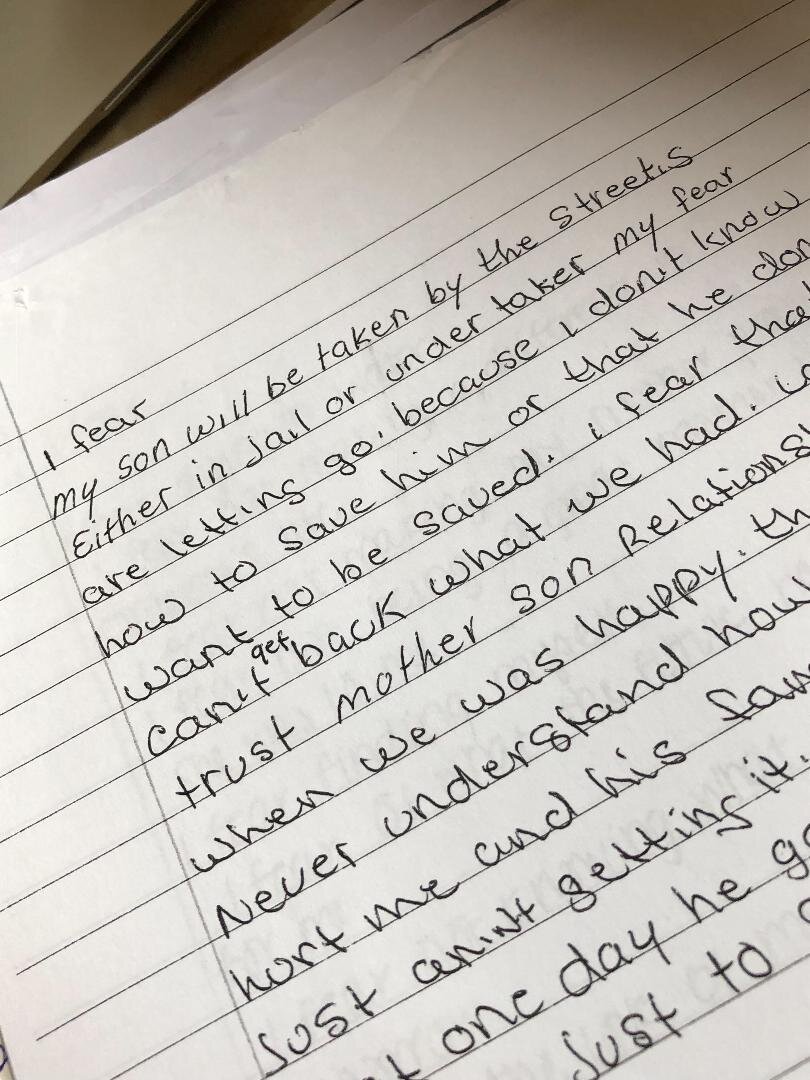 I fear
my son will be taken by the streets
Either in jail or under taker my fear
are letting go, because I don't know
how to save him or that he don
want to be saved. i fear tha
can't get back what we had.
trust mother son Relations
when we was happy. th
Never understand how
hurt me and his fam
Just ain't getting it.
one day he go
just to